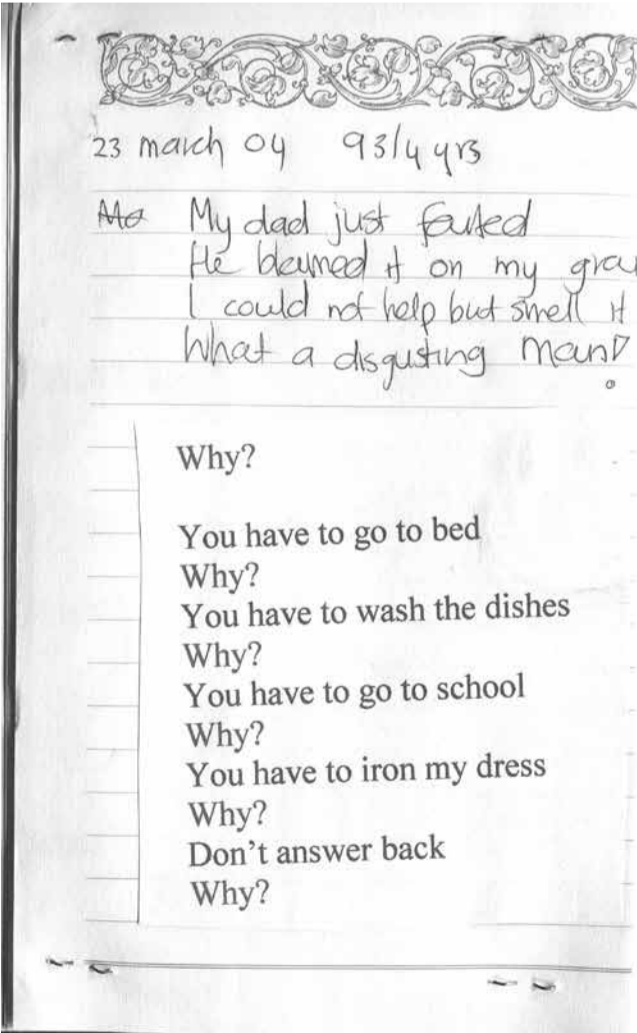 23 march 04 9 3/4 yrs
My dad just farted
He blamed it on my gra
I could not help but smell it
What a disgusting man!
Why?
You have to go to bed
Why?
You have to wash the dishes
Why?
You have to go to school
Why?
You have to iron my dress
Why?
Don't answer back
Why?